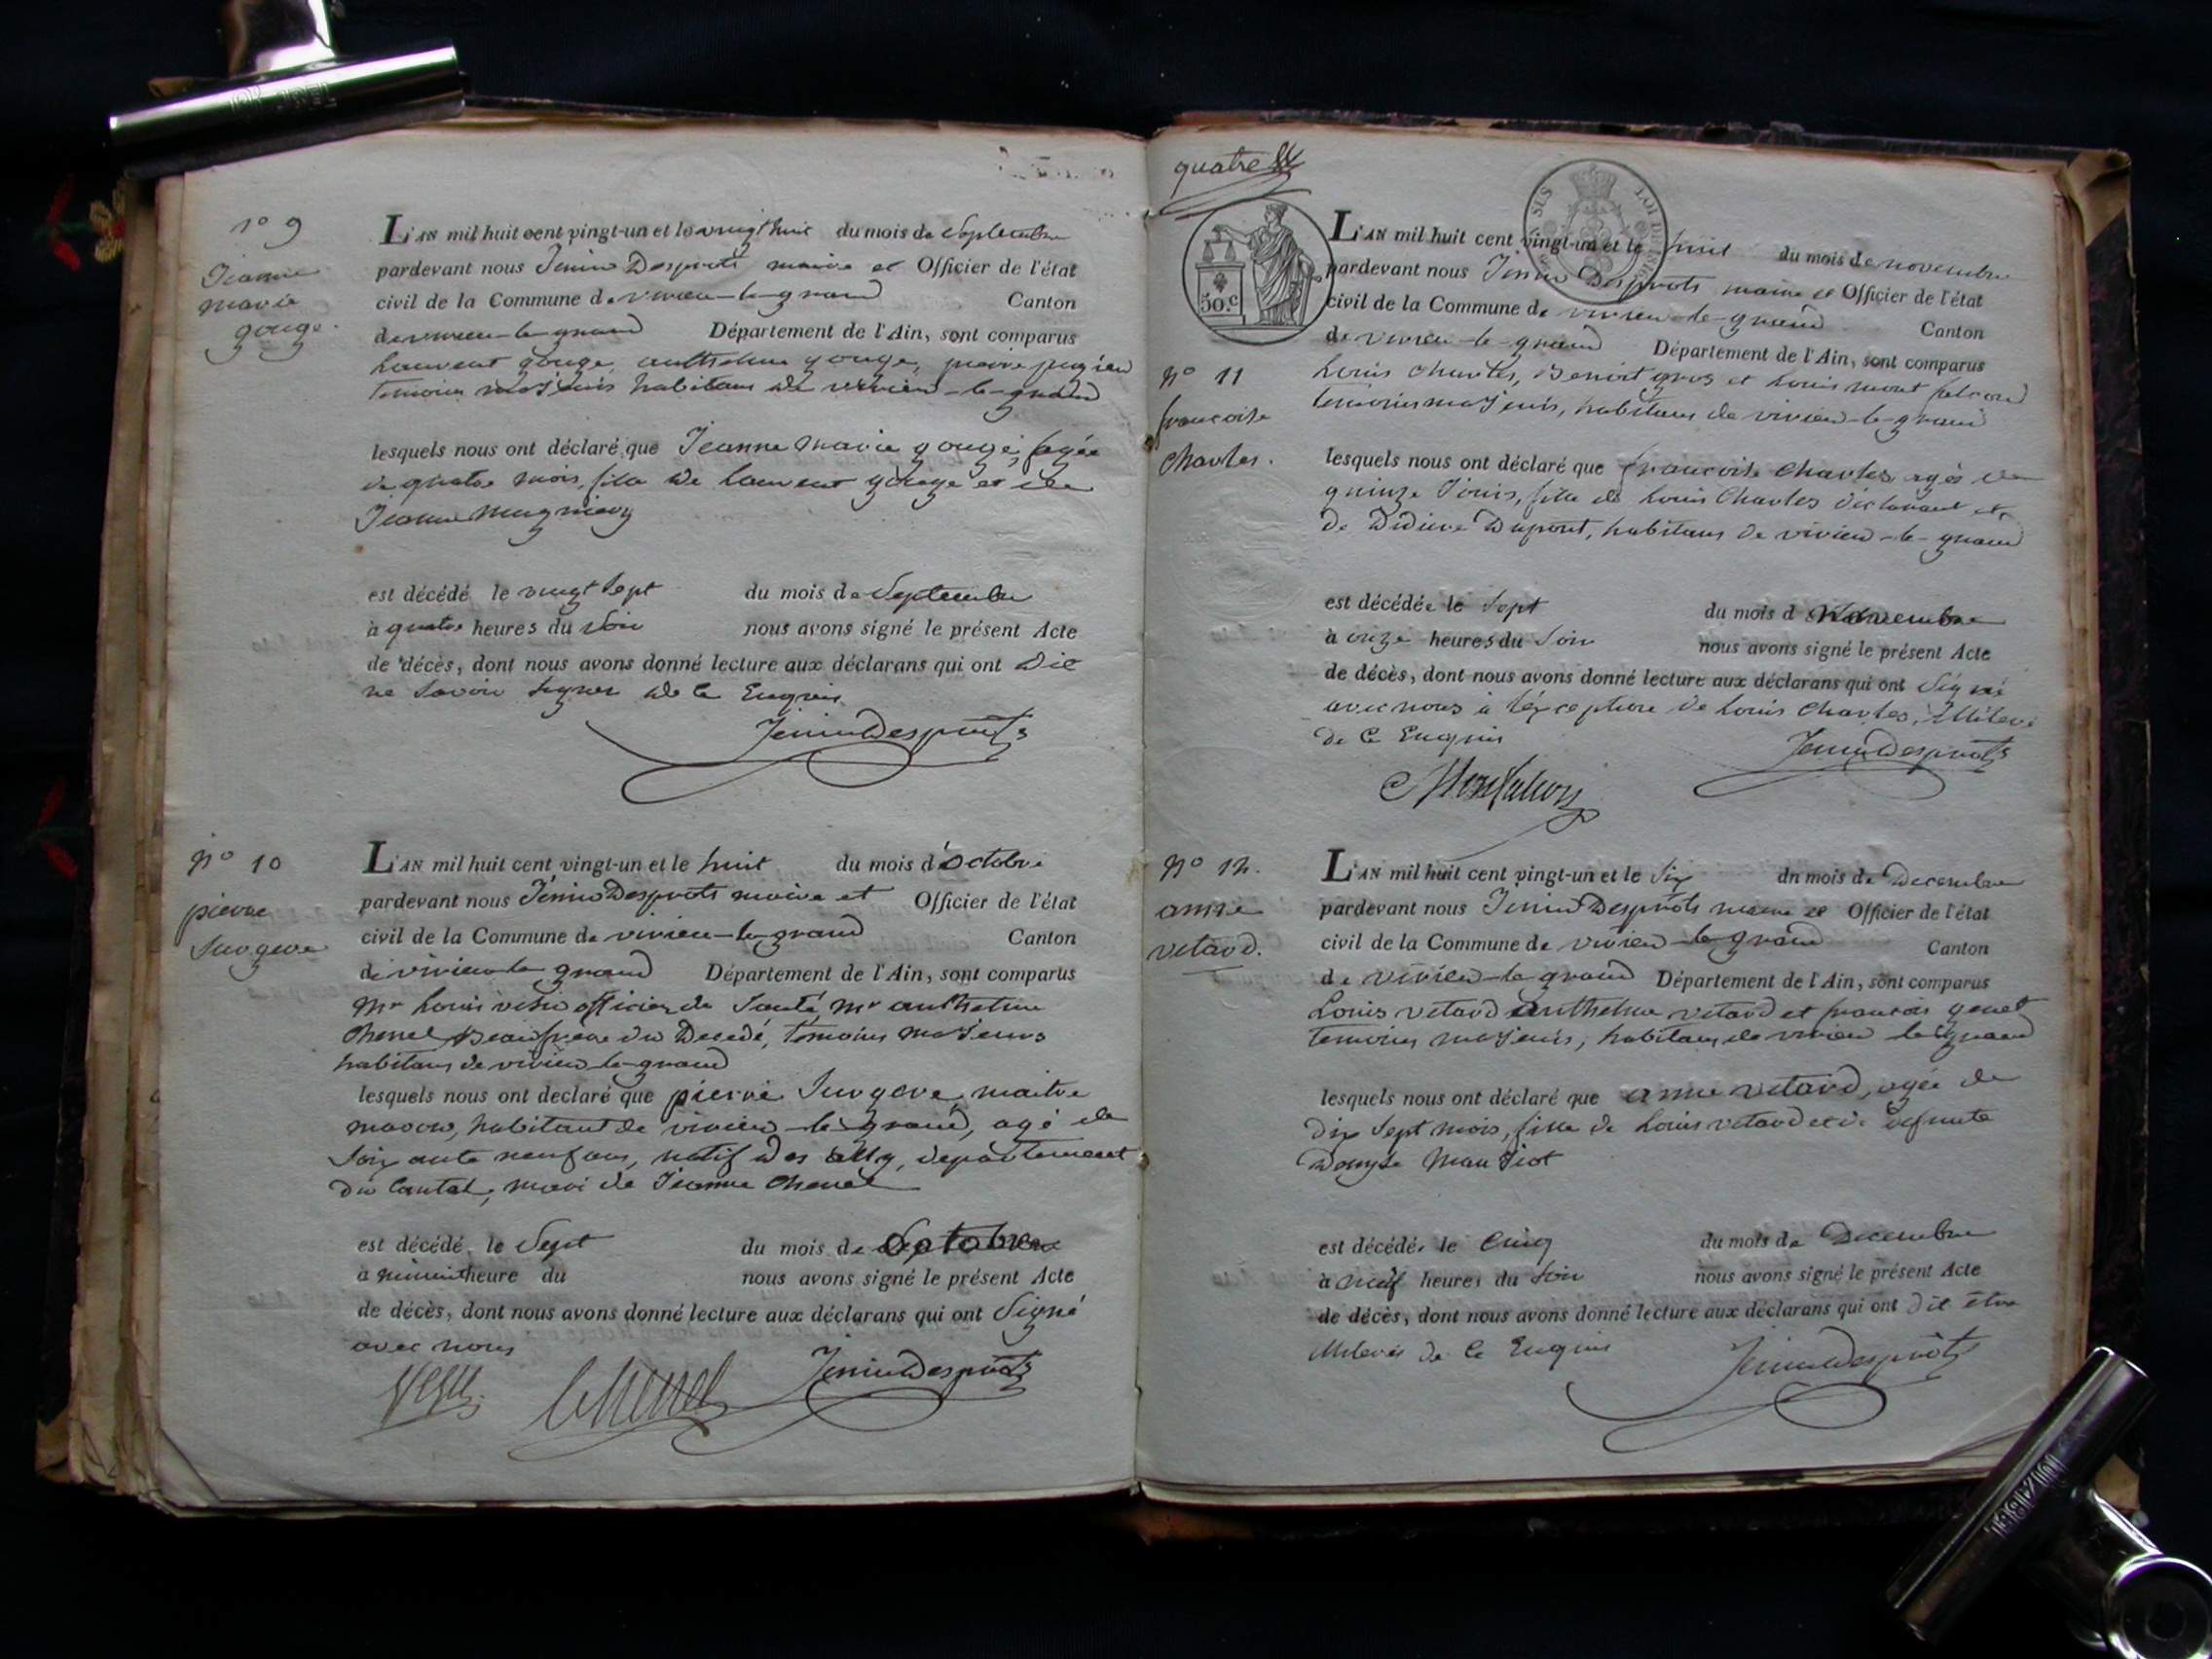 n° 9
Jeanne
marie
gouge.
L'AN mil huit cent vingt-un et le vingt huit du mois de Septembre
pardevant nous Jenin Desprots maire et Officier de l'état
civil de la Commune de virieu-le-grand Canton
de virieu-le-grand Département de l'Ain, sont comparus
Laurent gouge, anthelme gouge, pierre pugieu
temoins majeurs habitans de virieu-le-grand
lesquels nous ont déclaré que Jeanne marie gouge, agée
de quatre mois, fille de Laurent gouge et de
Jeanne
est décédé le vingt Sept du mois de Septembre
à quatre heures du Soir nous avons signé le présent Acte
de décès, dont nous avons donné lecture aux déclarans qui ont dit
ne Savoir Signer de ce Enquis
Jenin Desprots
n° 10
pierre
Surgere
L'AN mil huit cent vingt-un et le huit du mois d'octobre
pardevant nous Jenin Desprots maire et Officier de l'état
civil de la Commune de virieu-le-grand Canton
de virieu-le grand Département de l'Ain, sont comparus
Mr Louis officier de Santé, Mr anthelme
Chenel Beaufrere du Decedé, temoins majeurs
habitans de virieu-le-grand
lesquels nous ont declaré que pierre Surgere, maitre
macon, habitant de virieu-le-grand, agé de
Soixante neuf ans, natif des ally, departement
du Cantal, mari de Jeanne Chenel
est décédé le Sept du mois de octobre
à minuit heure du nous avons signé le présent Acte
de décès, dont nous avons donné lecture aux déclarans qui ont Signé
avec nous
Chenel Jenin Desprots
quatre
SIS LOI DE
50.c
L'AN mil huit cent vingt-un et le huit du mois de novembre
pardevant nous Jenin Desprots maire et Officier de l'état
civil de la Commune de virieu-le-grand Canton
de virieu-le-grand Département de l'Ain, sont comparus
n° 11
francoise
Charles.
Louis Charles, Benoit gros et Louis montfalcon
temoins majeurs, habitans de virieu-le-grand
lesquels nous ont déclaré que francoise Charles, agée de
quinze Jours, fille de Louis Charles declarant et
de Didiere Dupont, habitans de virieu-le-grand
est décédée le Sept du mois de Novembre
à onze heures du Soir nous avons signé le présent Acte
de décès, dont nous avons donné lecture aux déclarans qui ont Signé
avec nous à l'exception de Louis Charles, illiteré
de ce Enquis
Jenin Desprots
Montfalcon
n° 12.
anne
vetard.
L'AN mil huit cent vingt-un et le Six du mois de Decembre
pardevant nous Jenin Desprots maire et Officier de l'état
civil de la Commune de virieu-le-grand Canton
de virieu-le-grand Département de l'Ain, sont comparus
Louis vetard anthelme vetard et francois genet
temoins majeurs, habitans de virieu le grand
lesquels nous ont déclaré que anne vetard, agée de
dix Sept mois, fille de Louis vetard et de defunte
est décédée le Cinq du mois de Decembre
à neuf heures du Soir nous avons signé le présent Acte
de décès, dont nous avons donné lecture aux déclarans qui ont dit être
illiterés de ce Enquis
Jenin Desprots